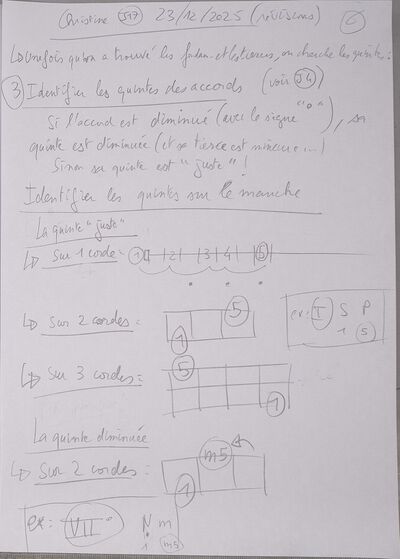 Christine J17 23/12/2025 (révisions) 6
↳ Une fois qu'on a trouvé les fondam. et les tierces, on cherche les quintes :
3 Identifier les quintes des accords (voir J4)
Si l'accord est diminué (avec le signe "o"), sa
quinte est diminuée (et sa tierce est mineure...)
Sinon sa quinte est "juste" !
Identifier les quintes sur le manche
La quinte "juste"
↳ Sur 1 corde = 1 2 3 4 5
↳ Sur 2 cordes = 5
1
ex: T S P
1 5
↳ Sur 3 cordes = 5
1
La quinte diminuée
↳ Sur 2 cordes = m5
1
ex: VII N m
1 m5